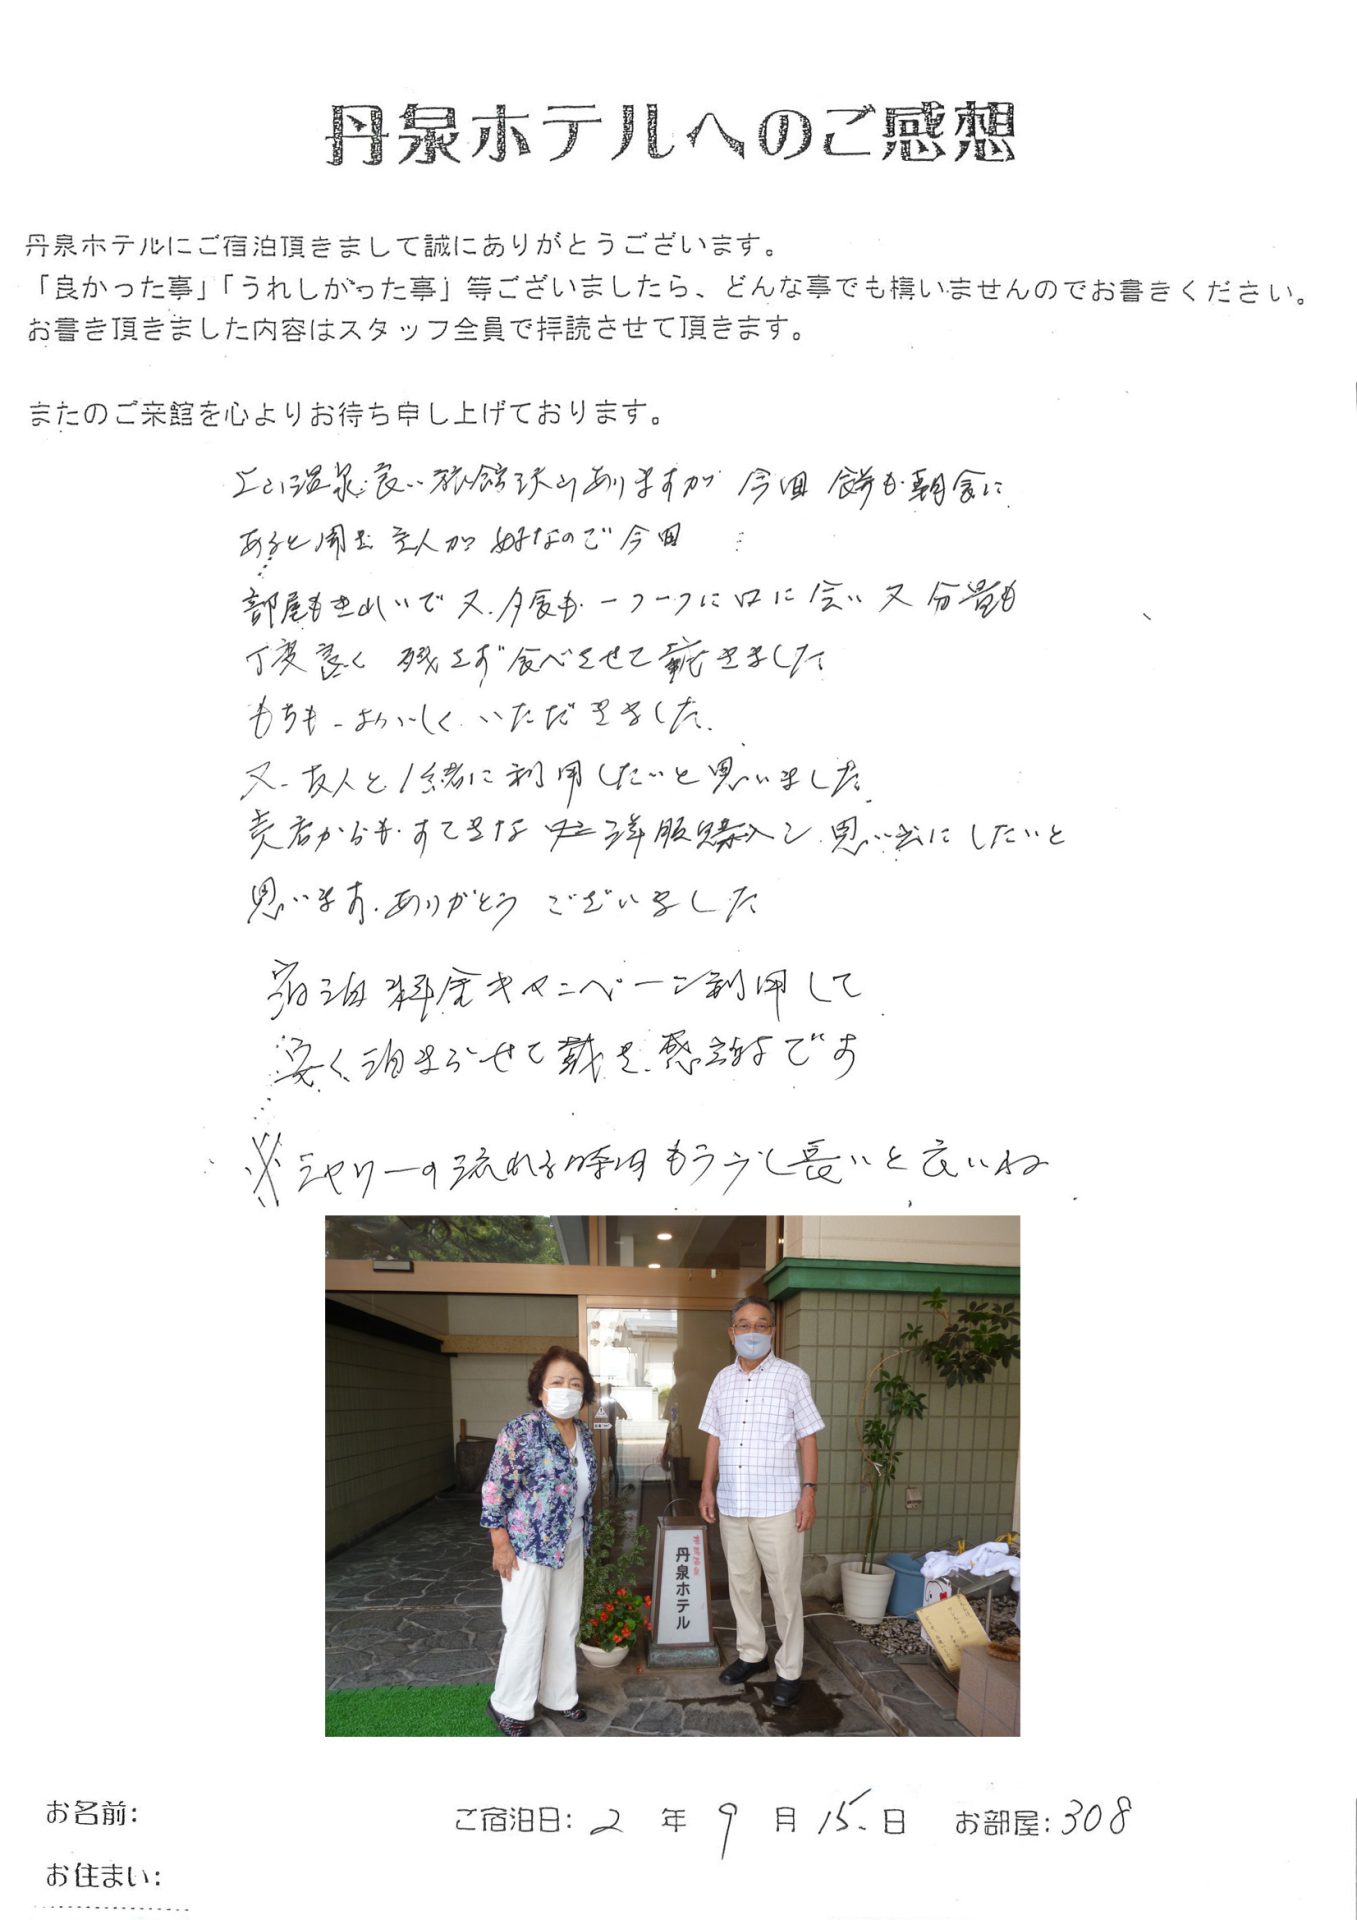 丹泉ホテルへのご感想
丹泉ホテルにご宿泊頂きまして誠にありがとうございます。
「良かった事」「うれしがった事」等ございましたら、どんな事でも構いませんのでお書きください。
お書き頂きました内容はスタッフ全員で拝読させて頂きます。
またのご来館を心よりお待ち申し上げております。
上山温泉良い旅館沢山ありますが 今回 餅も朝食に
あると聞き 主人が 好なので今回
部屋もきれいで 又、夕食も 一つ一つに口に合い 又 分量も
丁度良く 残さず食べさせて戴きました
もちも おいしく いただきました。
又、友人と一緒に利用したいと思いました。
売店からも すてきな 洋服購入し 思い出にしたいと
思います。ありがとう ございました
宿泊料金キャンペーン利用して
安く泊まらせて戴き 感謝です
※シャワーの流れる時間もう少し長いと良いね
丹泉ホテル
お名前:
ご宿泊日: 2 年 9 月 15 日 お部屋: 308
お住まい: